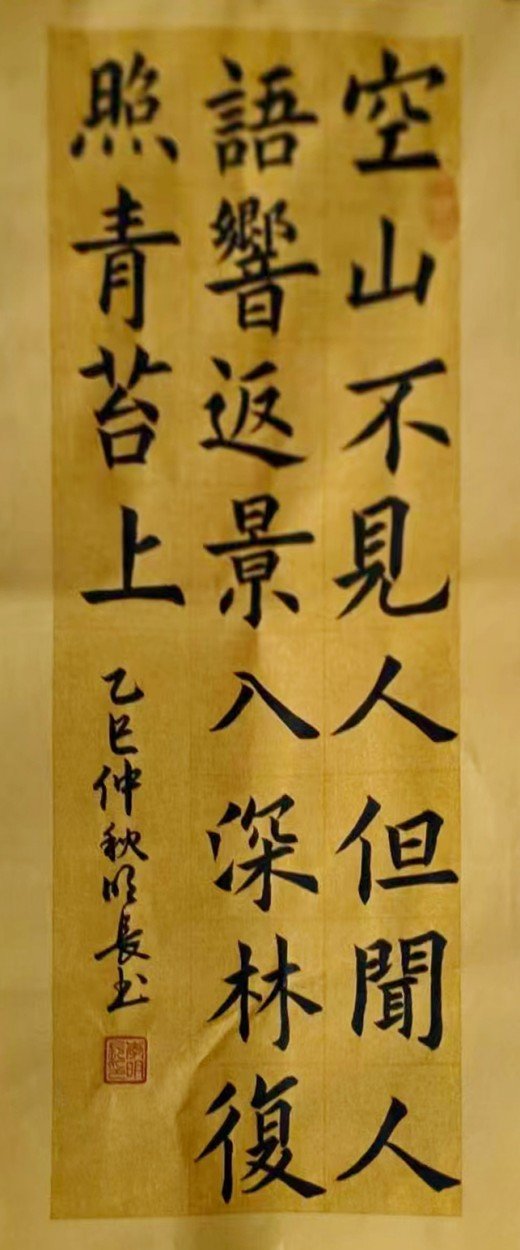 空山不見人但聞人
語響返景八深林復
照青苔上
乙巳仲秋明長书